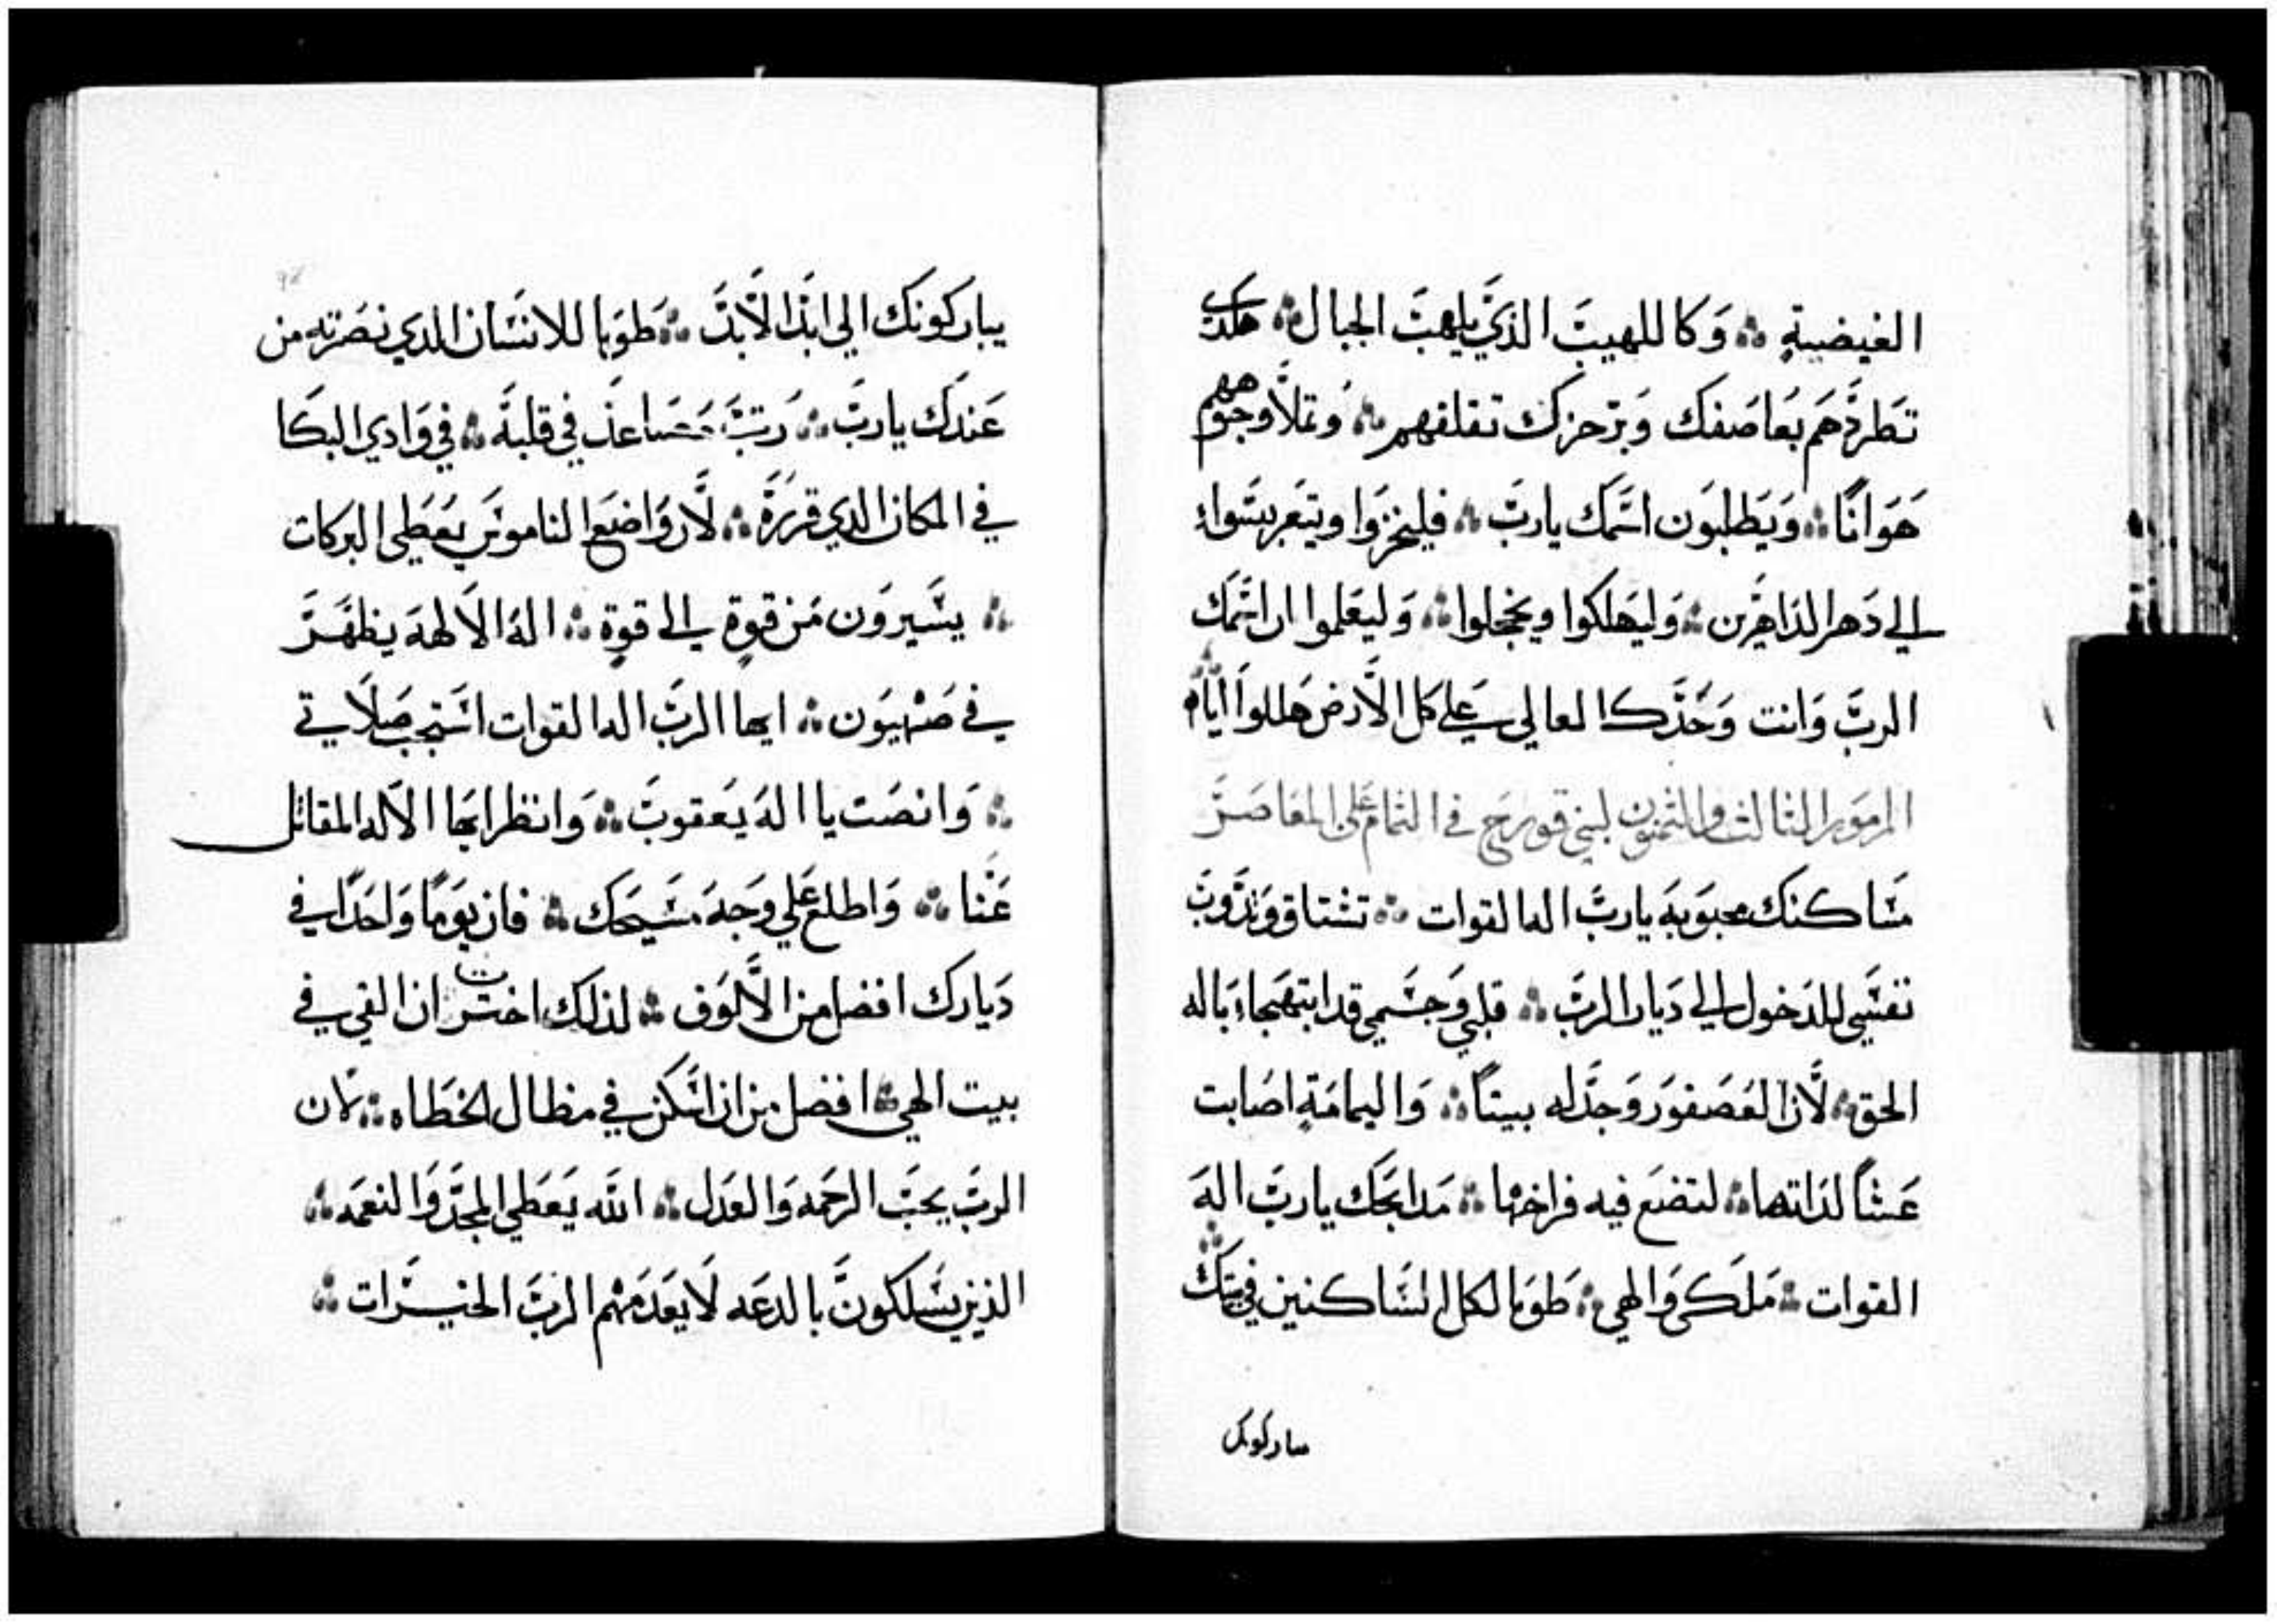 الغيضية ؞ وَكاللهيبَ الذيَ يلهبَ الجبال ؞ هكدى
تَطردَهَم بَعاصَفك وَبرَجزكَ تقلقهم ؞ وُتملاَ وجوههم
هَوَانًا ؞ وَيَطلبَون اسَمَك ياربَ ؞ فليخزَوا ويتعَربسَوا
الى دَهر الدَاهَرين ؞ وَليَهلكوا ويخجلوا ؞ وَليعَلموا ان اسَمك
الربَ وَانت وَحَدَك العالي عَلى كل الاَرض هَللواَ
المزمَور الثالث والثمنون لبني قورح في التمام على المعاصر
مَساكنك محبَوبهَ ياربَ اله القوات ؞ تشتاق وَتدَوبَ
نفسَي للدَخول الى دَيار الربَ ؞ قلبي وَجسَمي قد ابتهَجا بَاله
الحق ؞ لاَن العَصَفوَر وَجدَ له بيتاً ؞ وَاليمامَةِ اصَابت
عَشاً لذاتها ؞ لتضَع فيه فراخها ؞ مَدابحَك ياربَ الهَ
القوات ؞ مَلكى وَالهي ؞ طوَبا لكل السَاكنين في بيتك
يباركونك
يباركونَك الي ابدَ الاَبدَ ؞ طوَبا للانسَان الدي نصَرته من
عَندَك ياربَ ؞ رَتبَ مَصَاعدَ في قلبهَ ؞ في وَادي البكَا
في المكان الدي قررَهَ ؞ لاَن وَاضَع النامَوسَ يعَطى البركات
؞ يسَيروَن مَن قوةٍ الى قوةٍ ؞ الهَ الاَلههَ يظهَرَ
في صَهيوَن ؞ ايها الربَ اله القوات اسَتجب صَلاَتي
؞ وَانصَت يا الهَ يَعقوبَ ؞ وَانظر ايها الاَله المقاتل
عَنَا ؞ وَاطلع عَلي وجَهَ مسَيحَك ؞ فان يوَمًا وَاحَدًا في
دَيارك افضل من الاَلوَف ؞ لذلك اخترت ان القي في
بيت الهي ؞ افضل من ان اسَكن في مظال الخطَاه ؞ لاَن
الربَ يحبَ الرحَمه وَالعَدل ؞ الله يَعَطي المجدَ وَالنعمَه ؞
الذين يسَلكونَ بالدعَه لاَ يعَدَمَهم الربَ الخيرات ؞